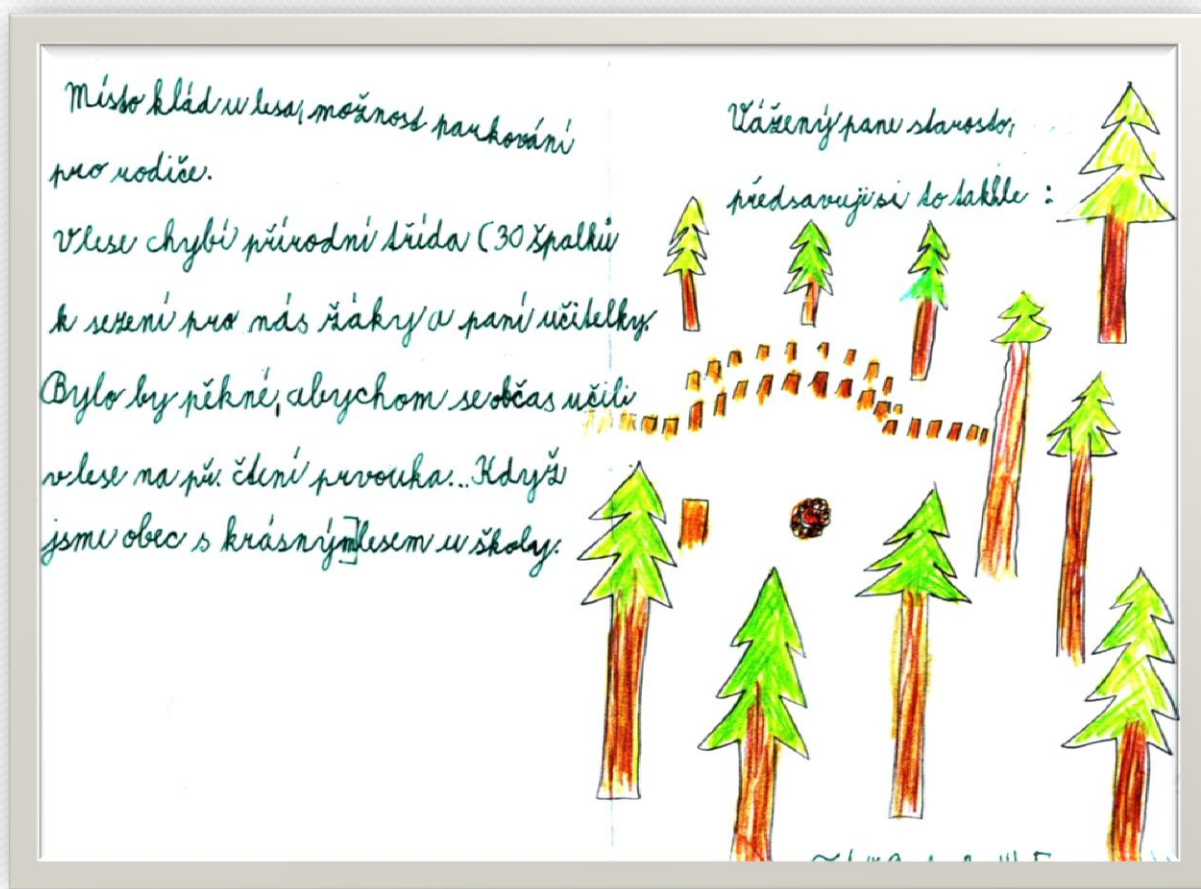 Místo klád u lesa, možnost parkování
pro rodiče.
V lese chybí přírodní třída (30 špalků
k sezení pro nás žáky a paní učitelky.
Bylo by pěkné, abychom se občas učili
v lese na př. čtení prvouka... Když
jsme obec s krásným]lesem u školy.
Vážený pane starosto,
předsavuji si to takhle :